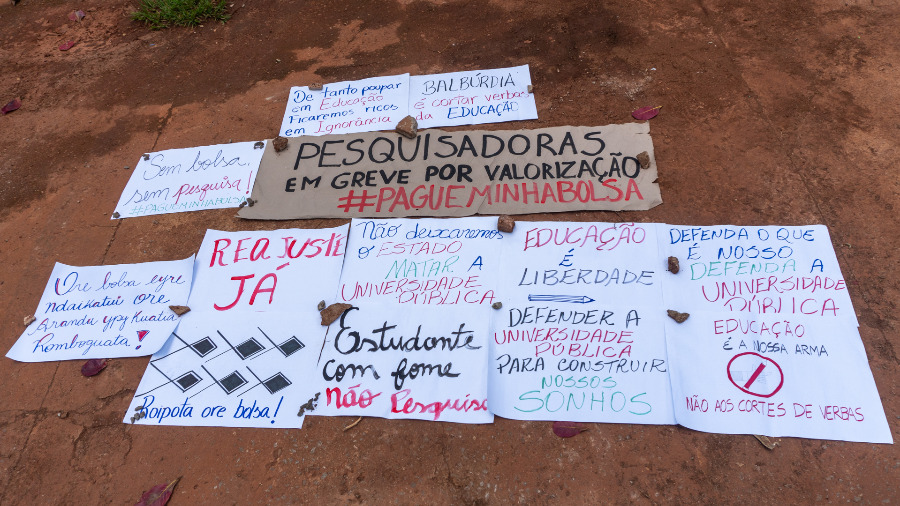 De tanto poupar
em Educação
Ficaremos ricos
em Ignorância
BALBÚRDIA!
é cortar verbas
da EDUCAÇÃO
Sem bolsa,
sem pesquisa!
#PAGUEMINHABOLSA
PESQUISADORAS
EM GREVE POR VALORIZAÇÃO
#PAGUEMINHABOLSA
Ore bolsa eyre
ndaikatui ore
Arandu ypy Kuatia
Romboguata!
REAJUSTE
JÁ
Roipota ore bolsa!
Não deixaremos
o ESTADO
MATAR A
UNIVERSIDADE
PÚBLICA
Estudante
com fome
não Pesquisa
EDUCAÇÃO
É
LIBERDADE
DEFENDER A
UNIVERSIDADE
PÚBLICA
PARA CONSTRUIR
NOSSOS
SONHOS
DEFENDA O QUE
É NOSSO
DEFENDA A
UNIVERSIDADE
PÚBLICA
EDUCAÇÃO
É A NOSSA ARMA
NÃO AOS CORTES DE VERBAS